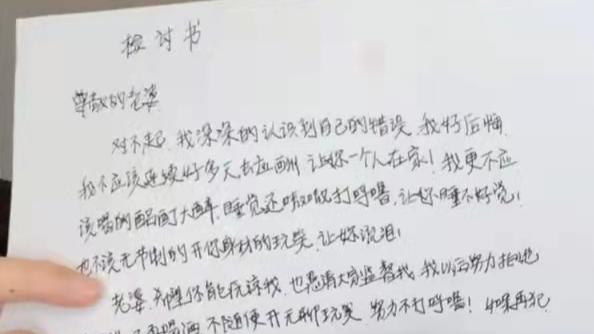 检讨书
尊敬的老婆
对不起,我深深的认识到自己的错误,我好后悔
我不应该连续好多天去应酬,让你一个人在家!我更不应
该喝的酩酊大醉,睡觉还打呼噜,让你睡不好觉!
也不该无节制的开你身材的玩笑,让你流泪!
老婆,希望你能原谅我,也恳请大家监督我,我以后努力
喝酒,不随便开玩笑,努力不打呼噜!如果再犯